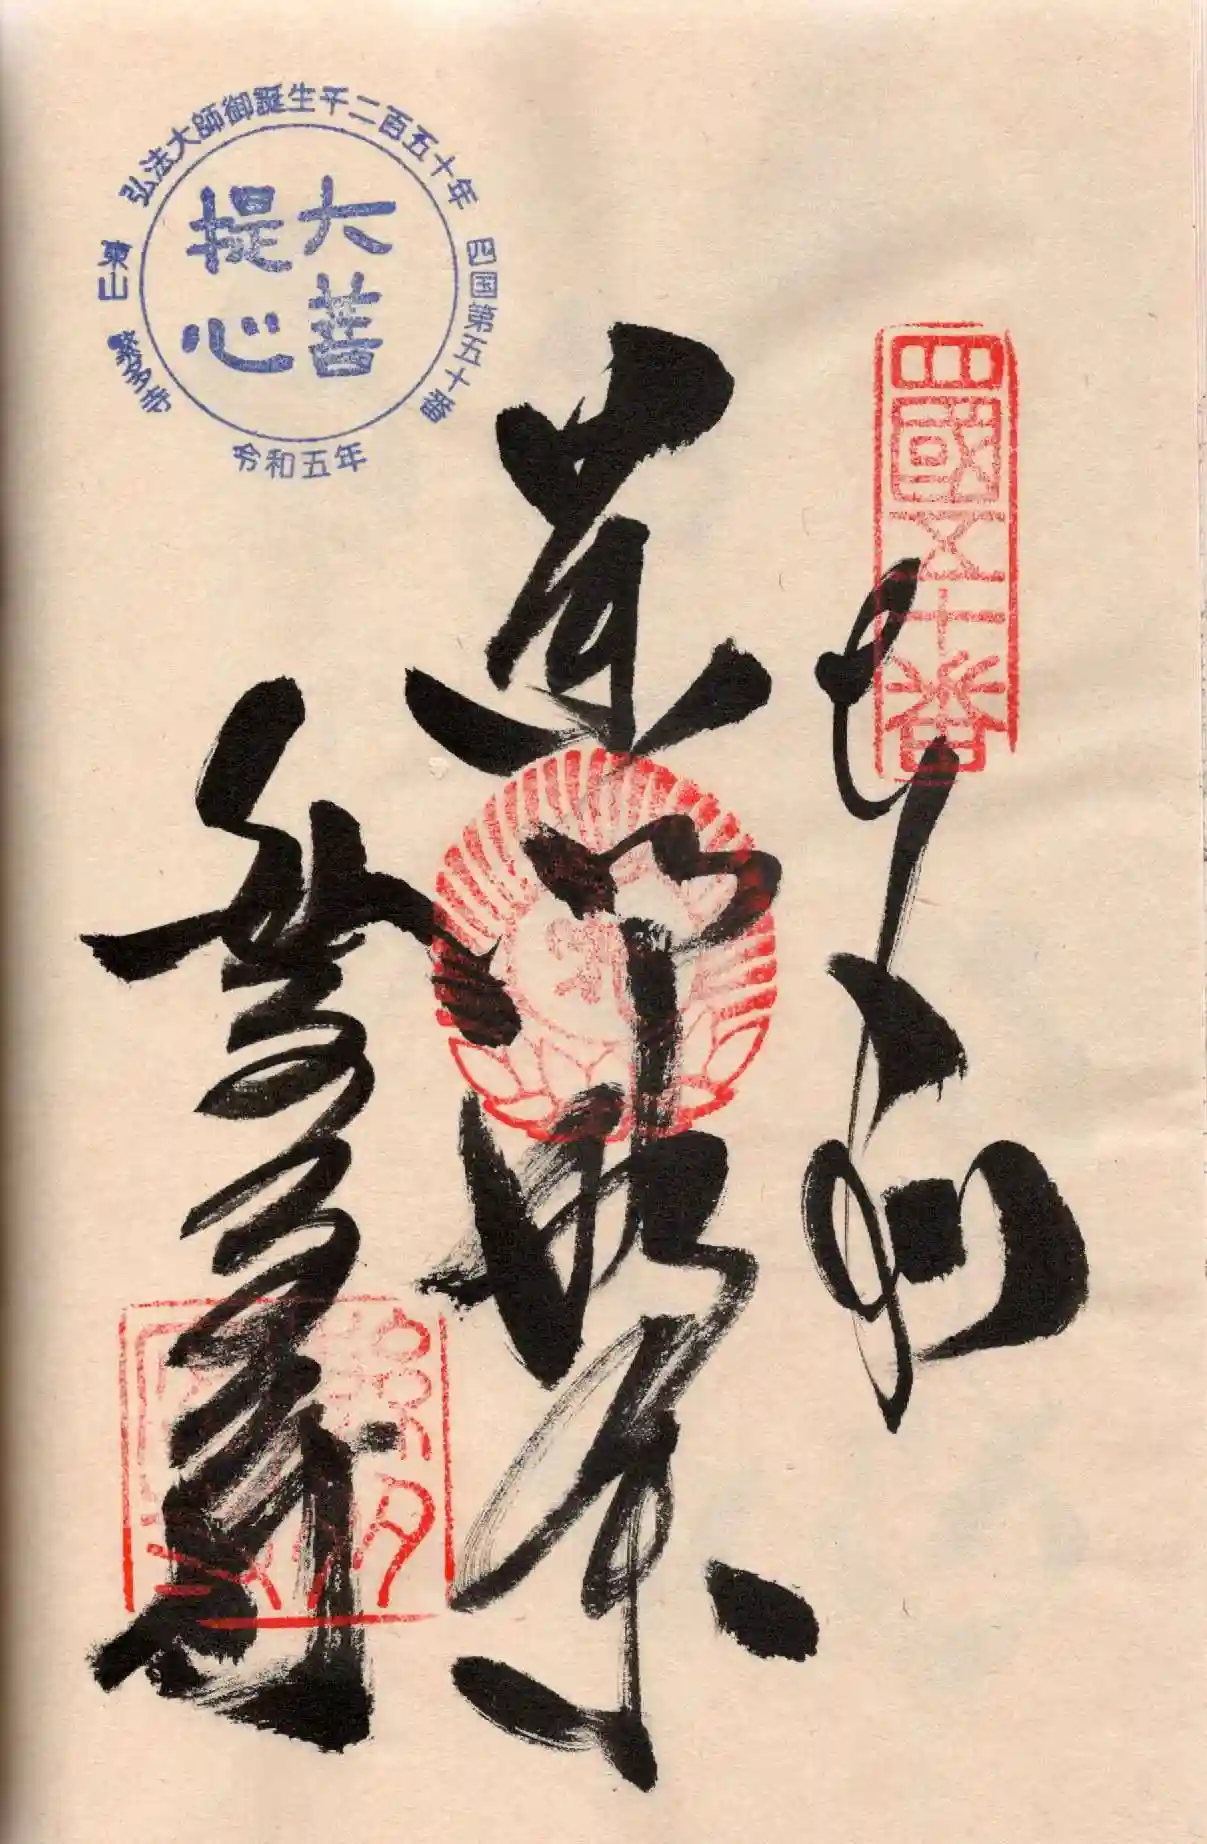 四國五十番
奉納
薬師如来
繁多寺
弘法大師御誕生千二百五十年
四国第五十番
東山 繁多寺
令和五年
大菩
提心